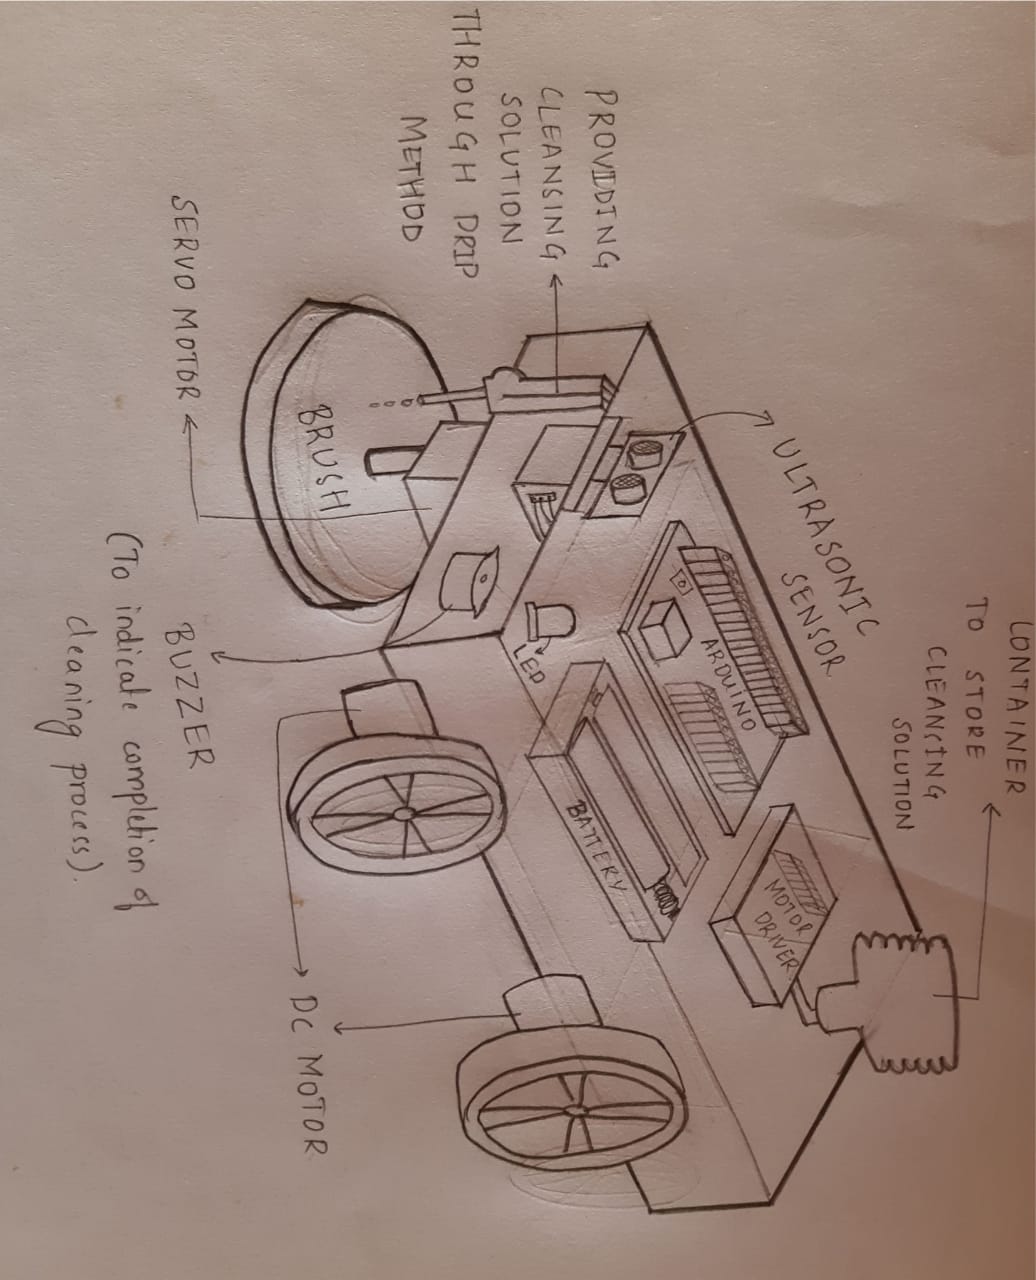 CONTAINER
TO STORE
CLEANSING
SOLUTION
ULTRASONIC
SENSOR
MOTOR
DRIVER
ARDUINO
BATTERY
LED
PROVIDING
CLEANSING
SOLUTION
THROUGH DRIP
METHOD
BRUSH
DC MOTOR
SERVO MOTOR
BUZZER
(To indicate completion of
cleaning process).